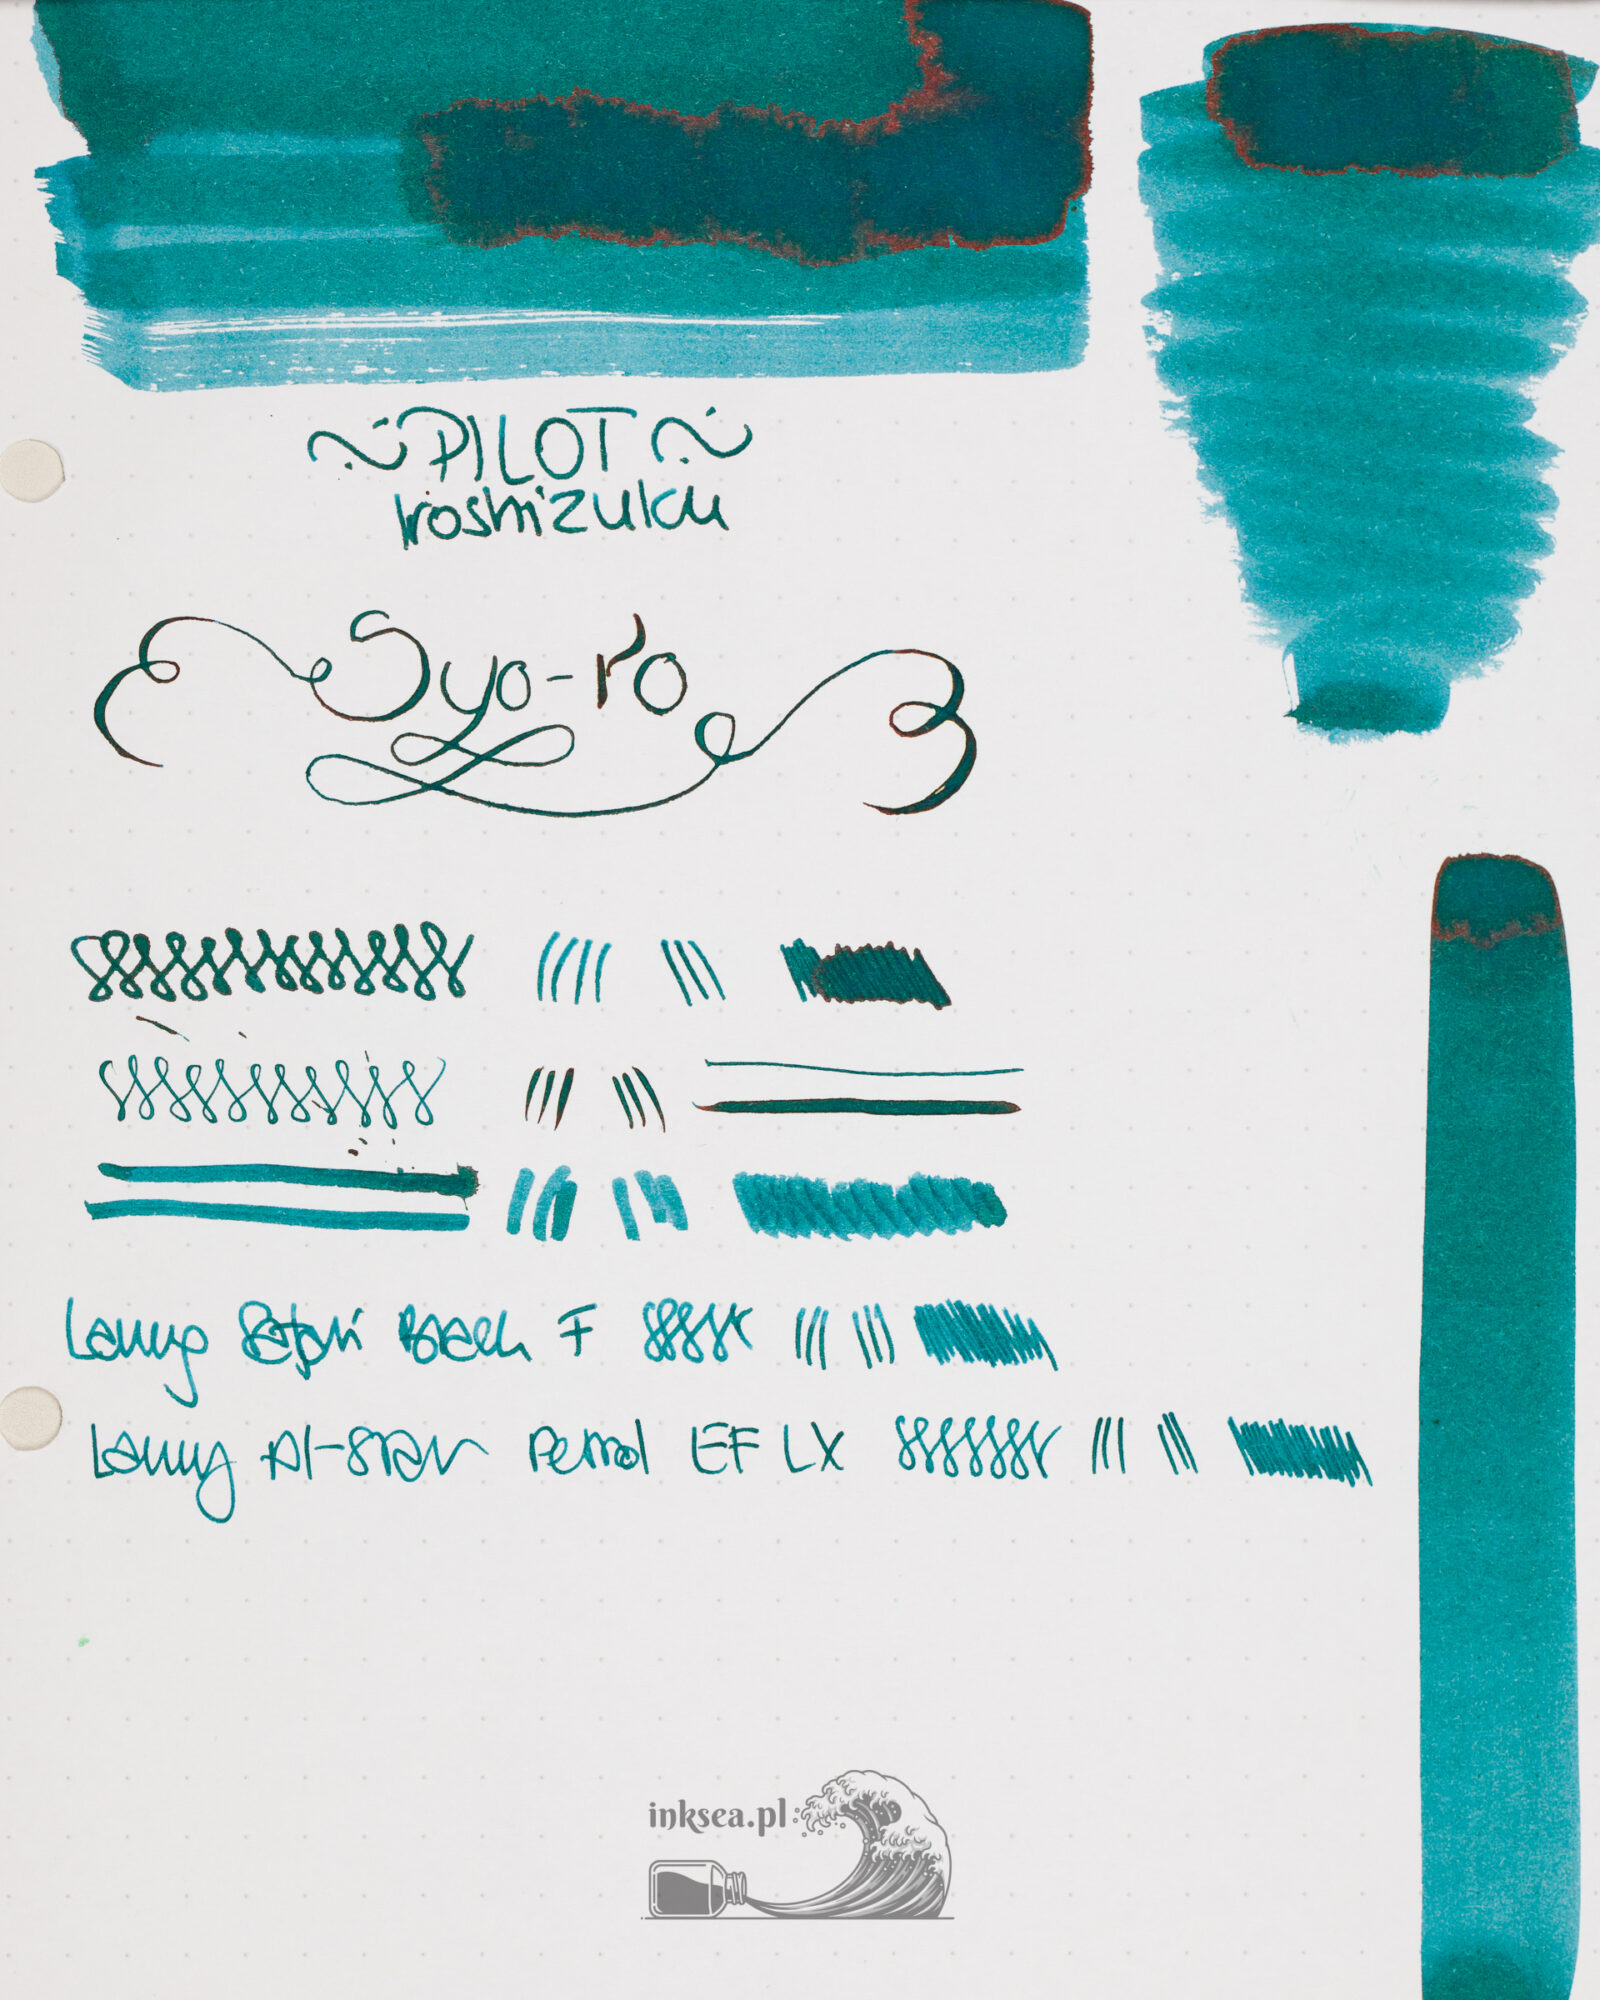 ~ PILOT ~
Iroshizuku
Syo-ro
Lamy Safari Black F
Lamy Al-Star Petrol EF LX
inksea.pl